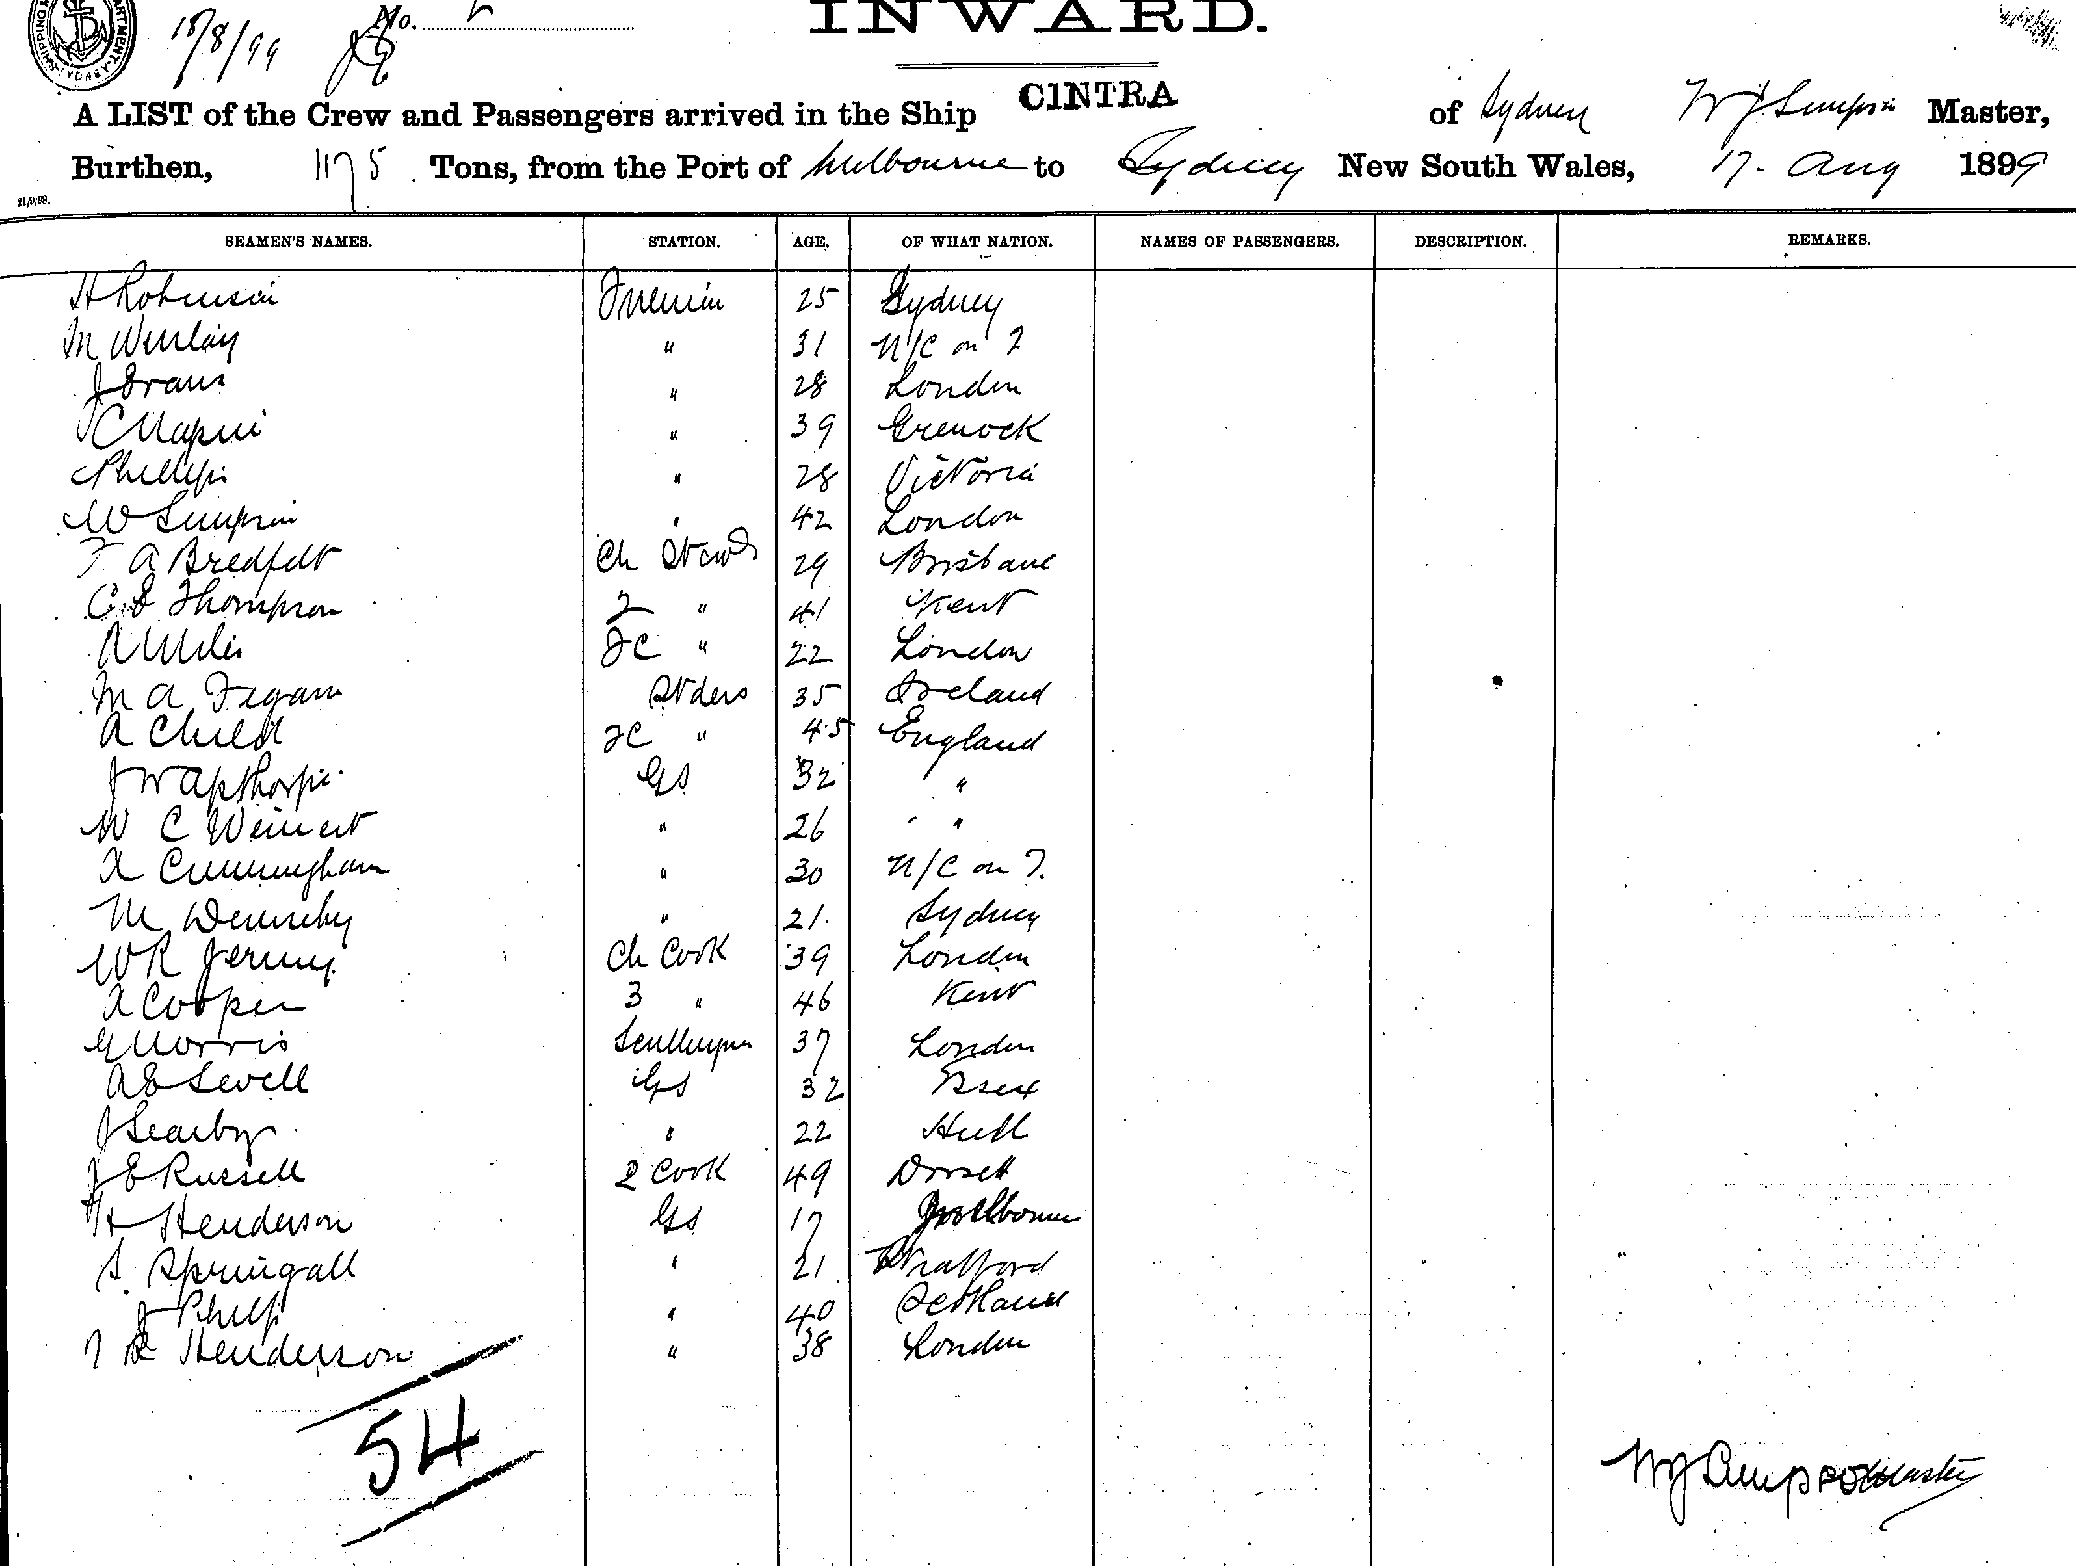 No.
INWARD.
18/8/99
A LIST of the Crew and Passengers arrived in the Ship CINTRA of Sydney W J Simpson Master,
Burthen, 1175 Tons, from the Port of Melbourne to Sydney New South Wales, 17. Aug 1899
SEAMEN'S NAMES. STATION. AGE. OF WHAT NATION. NAMES OF PASSENGERS. DESCRIPTION. REMARKS.
H Robinson Fireman 25 Sydney
M " 31 N/C on T
J Evans " 28 London
" 39 Greenock
Phillips " 28 Victoria
W Simpson " 42 London
F A Bredfelt Ch Stewd 29 Brisbane
C E Thompson 2 " 41 Kent
A Miles FC " 22 London
M A Fegam Stdess 35 Ireland
A Child FC " 45 England
J W Apthorpe GS 32 "
W C Weinert " 26 "
A Cunningham " 30 N/C on T.
M " 21. Sydney
W R Jermy. Ch Cook 39 London
A Cooper 3 " 46 Kent
G Morris Scullyman 37 London
A E Sewell GS 32 Essex
J Searby " 22 Hull
J E Russell 2 Cook 49 Dorset
H Henderson GS 17 Melbourne
S. Springall " 21 Stratford
J Philp " 40 Scotland
T R Henderson " 38 London
54
W J Simpson Master